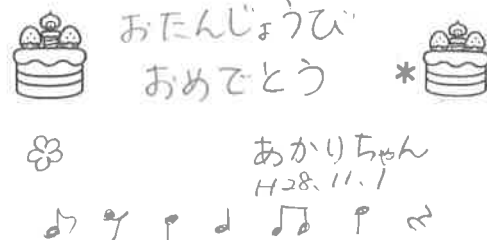 おたんじょうび
おめでとう
あかりちゃん
H28.11.1